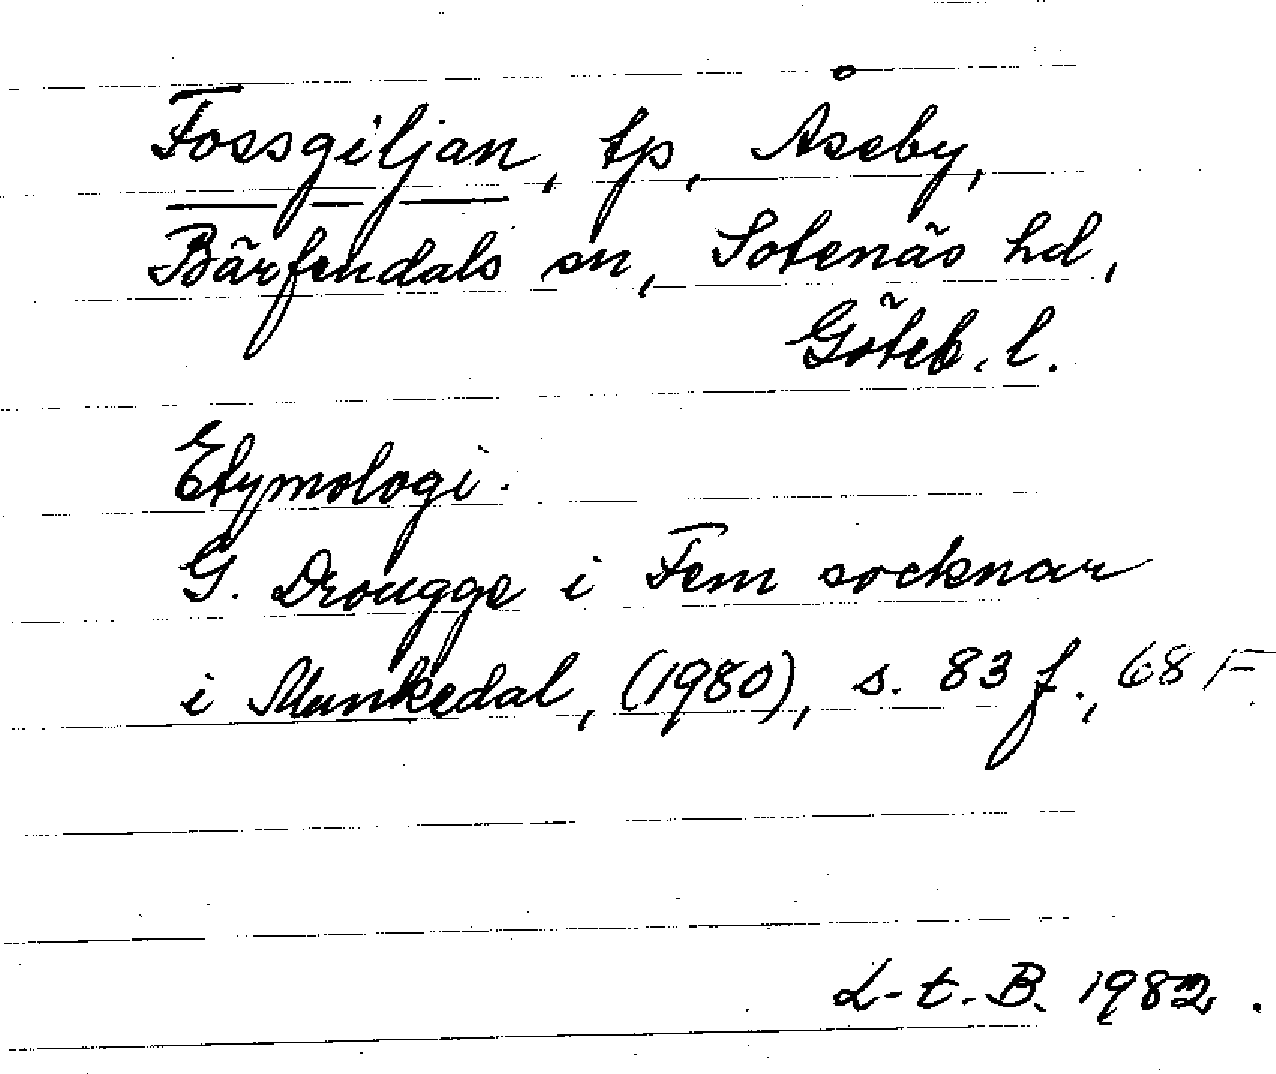 Fossgiljan, tp, Åseby,
Bärfendals sn, Sotenäs hd,
Göteb. l.
Etymologi.
G. Drougge i Fem socknar
i Munkedal, (1980), s. 83 f., 68 F
L-t. B. 1982.